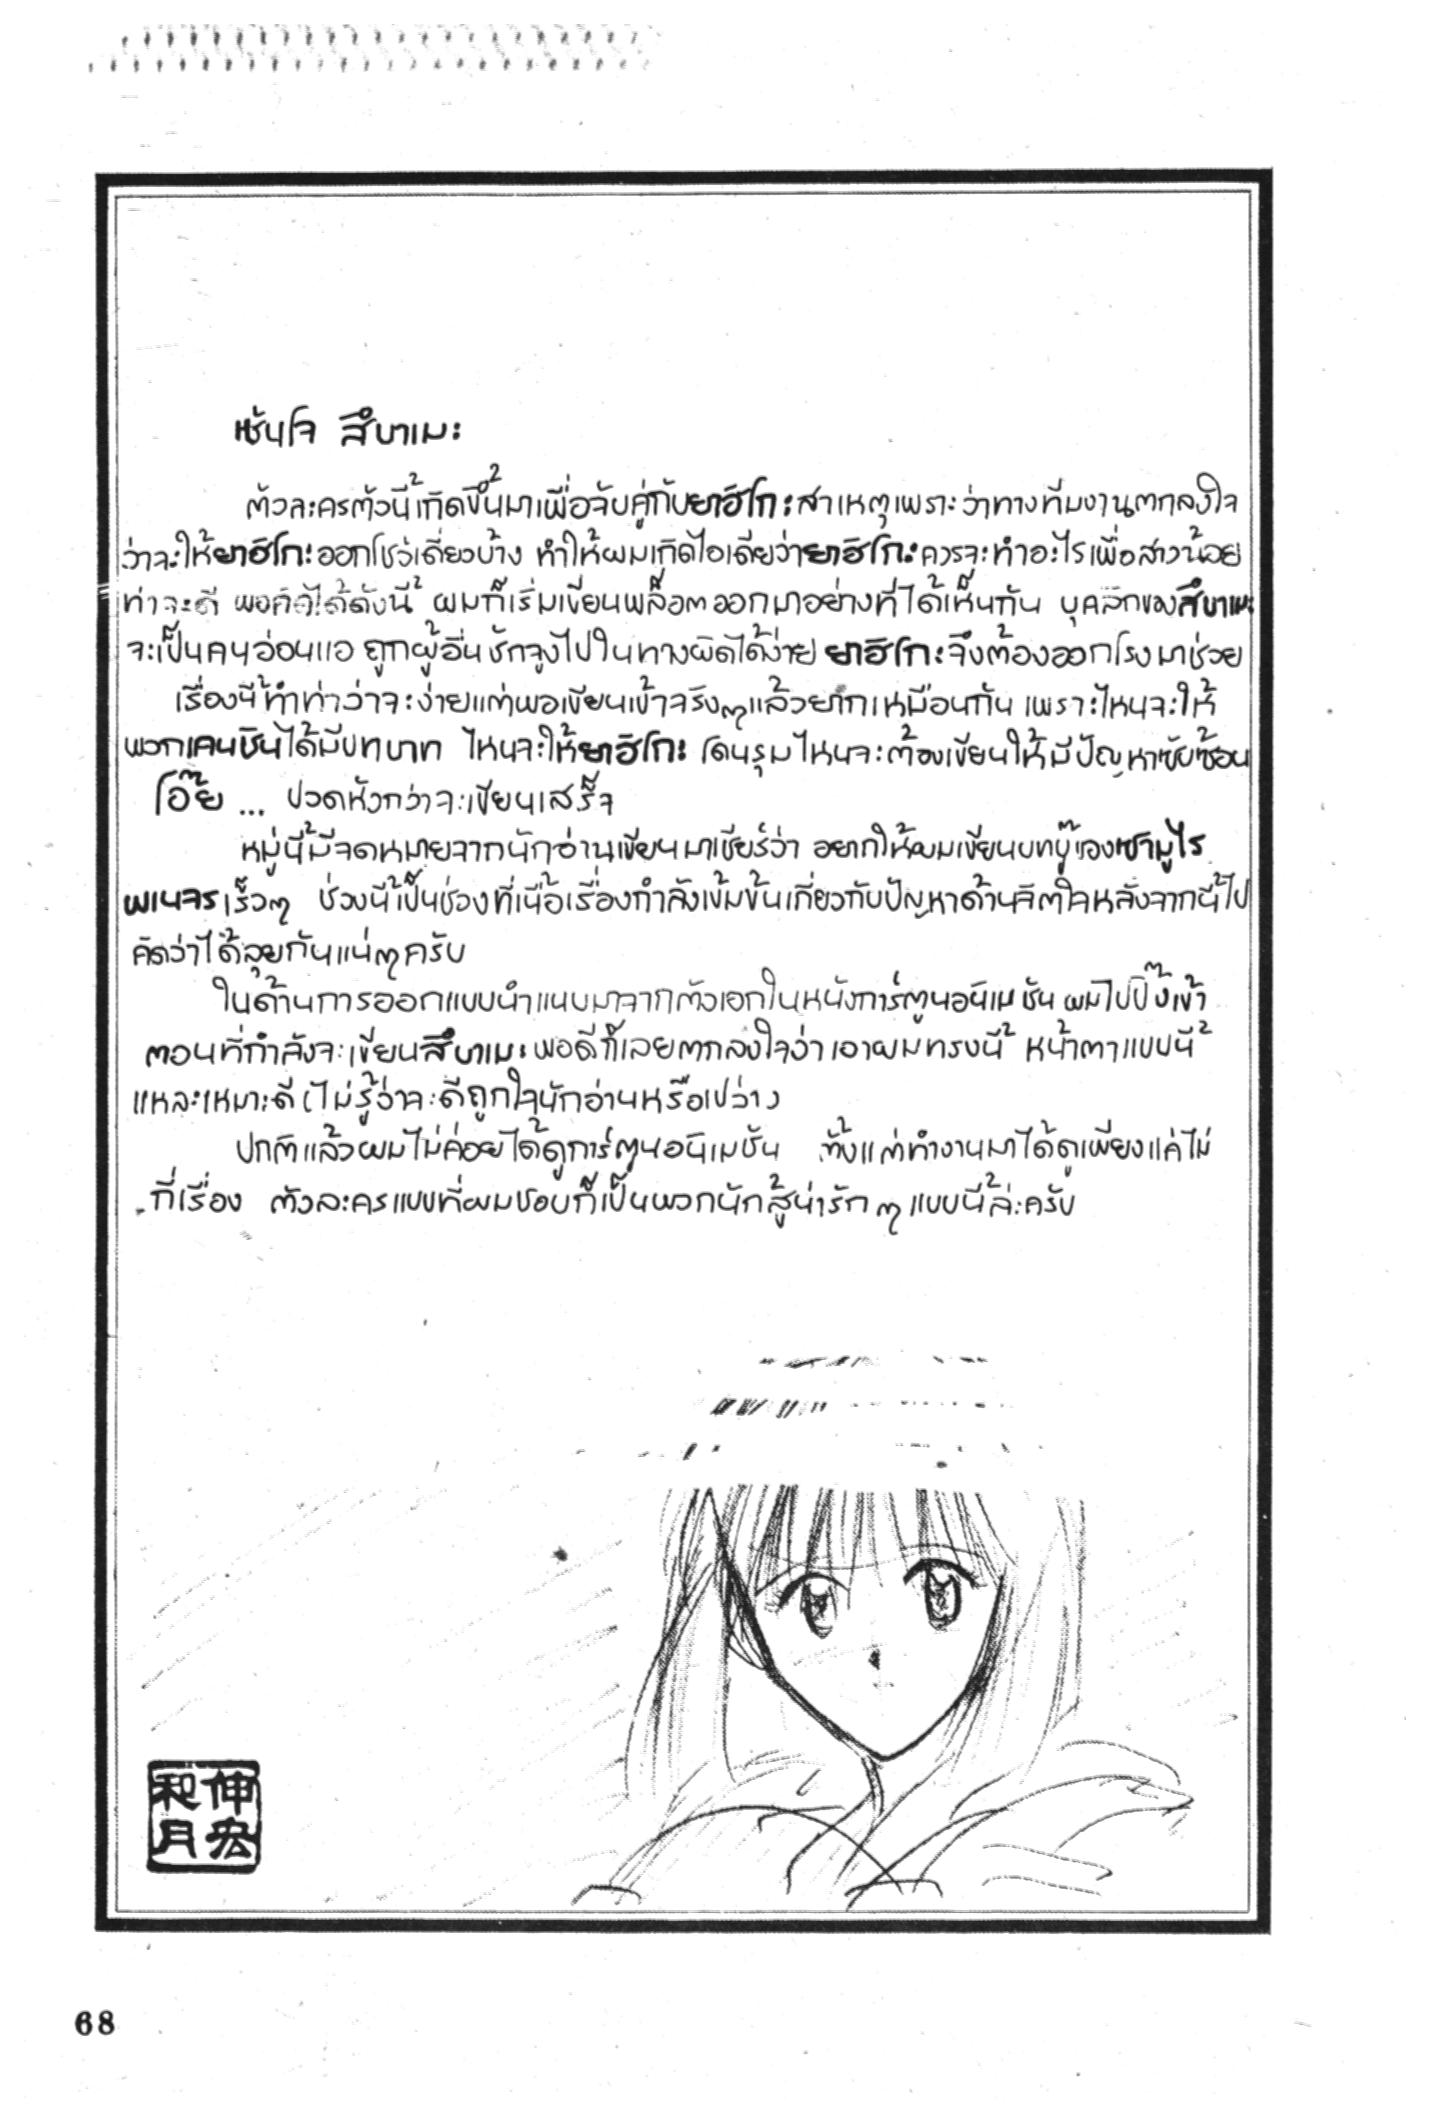 เซ้นโจ สึบาเมะ
ตัวละครตัวนี้เกิดขึ้นมาเพื่อจับคู่กับยาฮิโกะสาเหตุเพราะว่าทางทีมงานตกลงใจ
ว่าจะให้ยาฮิโกะออกโชว์เดี่ยวบ้าง ทำให้ผมเกิดไอเดียว่ายาฮิโกะควรจะทำอะไรเพื่อสาวน้อย
ท่าจะดี พอคิดได้ดังนี้ ผมก็เริ่มเขียนพล็อตออกมาอย่างที่ได้เห็นกัน บุคลิกของสึบาเมะ
จะเป็นคนอ่อนแอ ถูกผู้อื่นชักจูงไปในทางผิดได้ง่าย ยาฮิโกะจึงต้องออกโรงมาช่วย
เรื่องนี้ทำท่าว่าจะง่ายแต่พอเขียนเข้าจริงๆแล้วยากเหมือนกัน เพราะไหนจะให้
พวกเคนชินได้มีบทบาท ไหนจะให้ยาฮิโกะ โดนรุมไหนจะต้องเขียนให้มีปัญหาซับซ้อน
โอ๊ย ... ปวดหัวกว่าจะเขียนเสร็จ
หมู่นี้มีจดหมายจากนักอ่านเขียนมาเชียร์ว่า อยากให้ผมเขียนบทบู๊ของซามูไร
พเนจรเร็วๆ ช่วงนี้เป็นช่วงที่เนื้อเรื่องกำลังเข้มข้นเกี่ยวกับปัญหาด้านจิตใจหลังจากนี้ไป
คิดว่าได้ลุยกันแน่ๆครับ
ในด้านการออกแบบนำแบบมาจากตัวเอกในหนังการ์ตูนอนิเมชัน ผมไปปิ๊งเข้า
ตอนที่กำลังจะเขียนสึบาเมะพอดีก็เลยตกลงใจว่าเอาผมทรงนี้ หน้าตาแบบนี้
แหละเหมาะดี (ไม่รู้ว่าจะดีถูกใจนักอ่านหรือเปล่า)
ปกติแล้วผมไม่ค่อยได้ดูการ์ตูนอนิเมชัน ตั้งแต่ทำงานมาได้ดูเพียงแค่ไม่
กี่เรื่อง ตัวละครแบบที่ผมชอบก็เป็นพวกนักสู้น่ารักๆแบบนี้ล่ะครับ
和伸
月宏
68